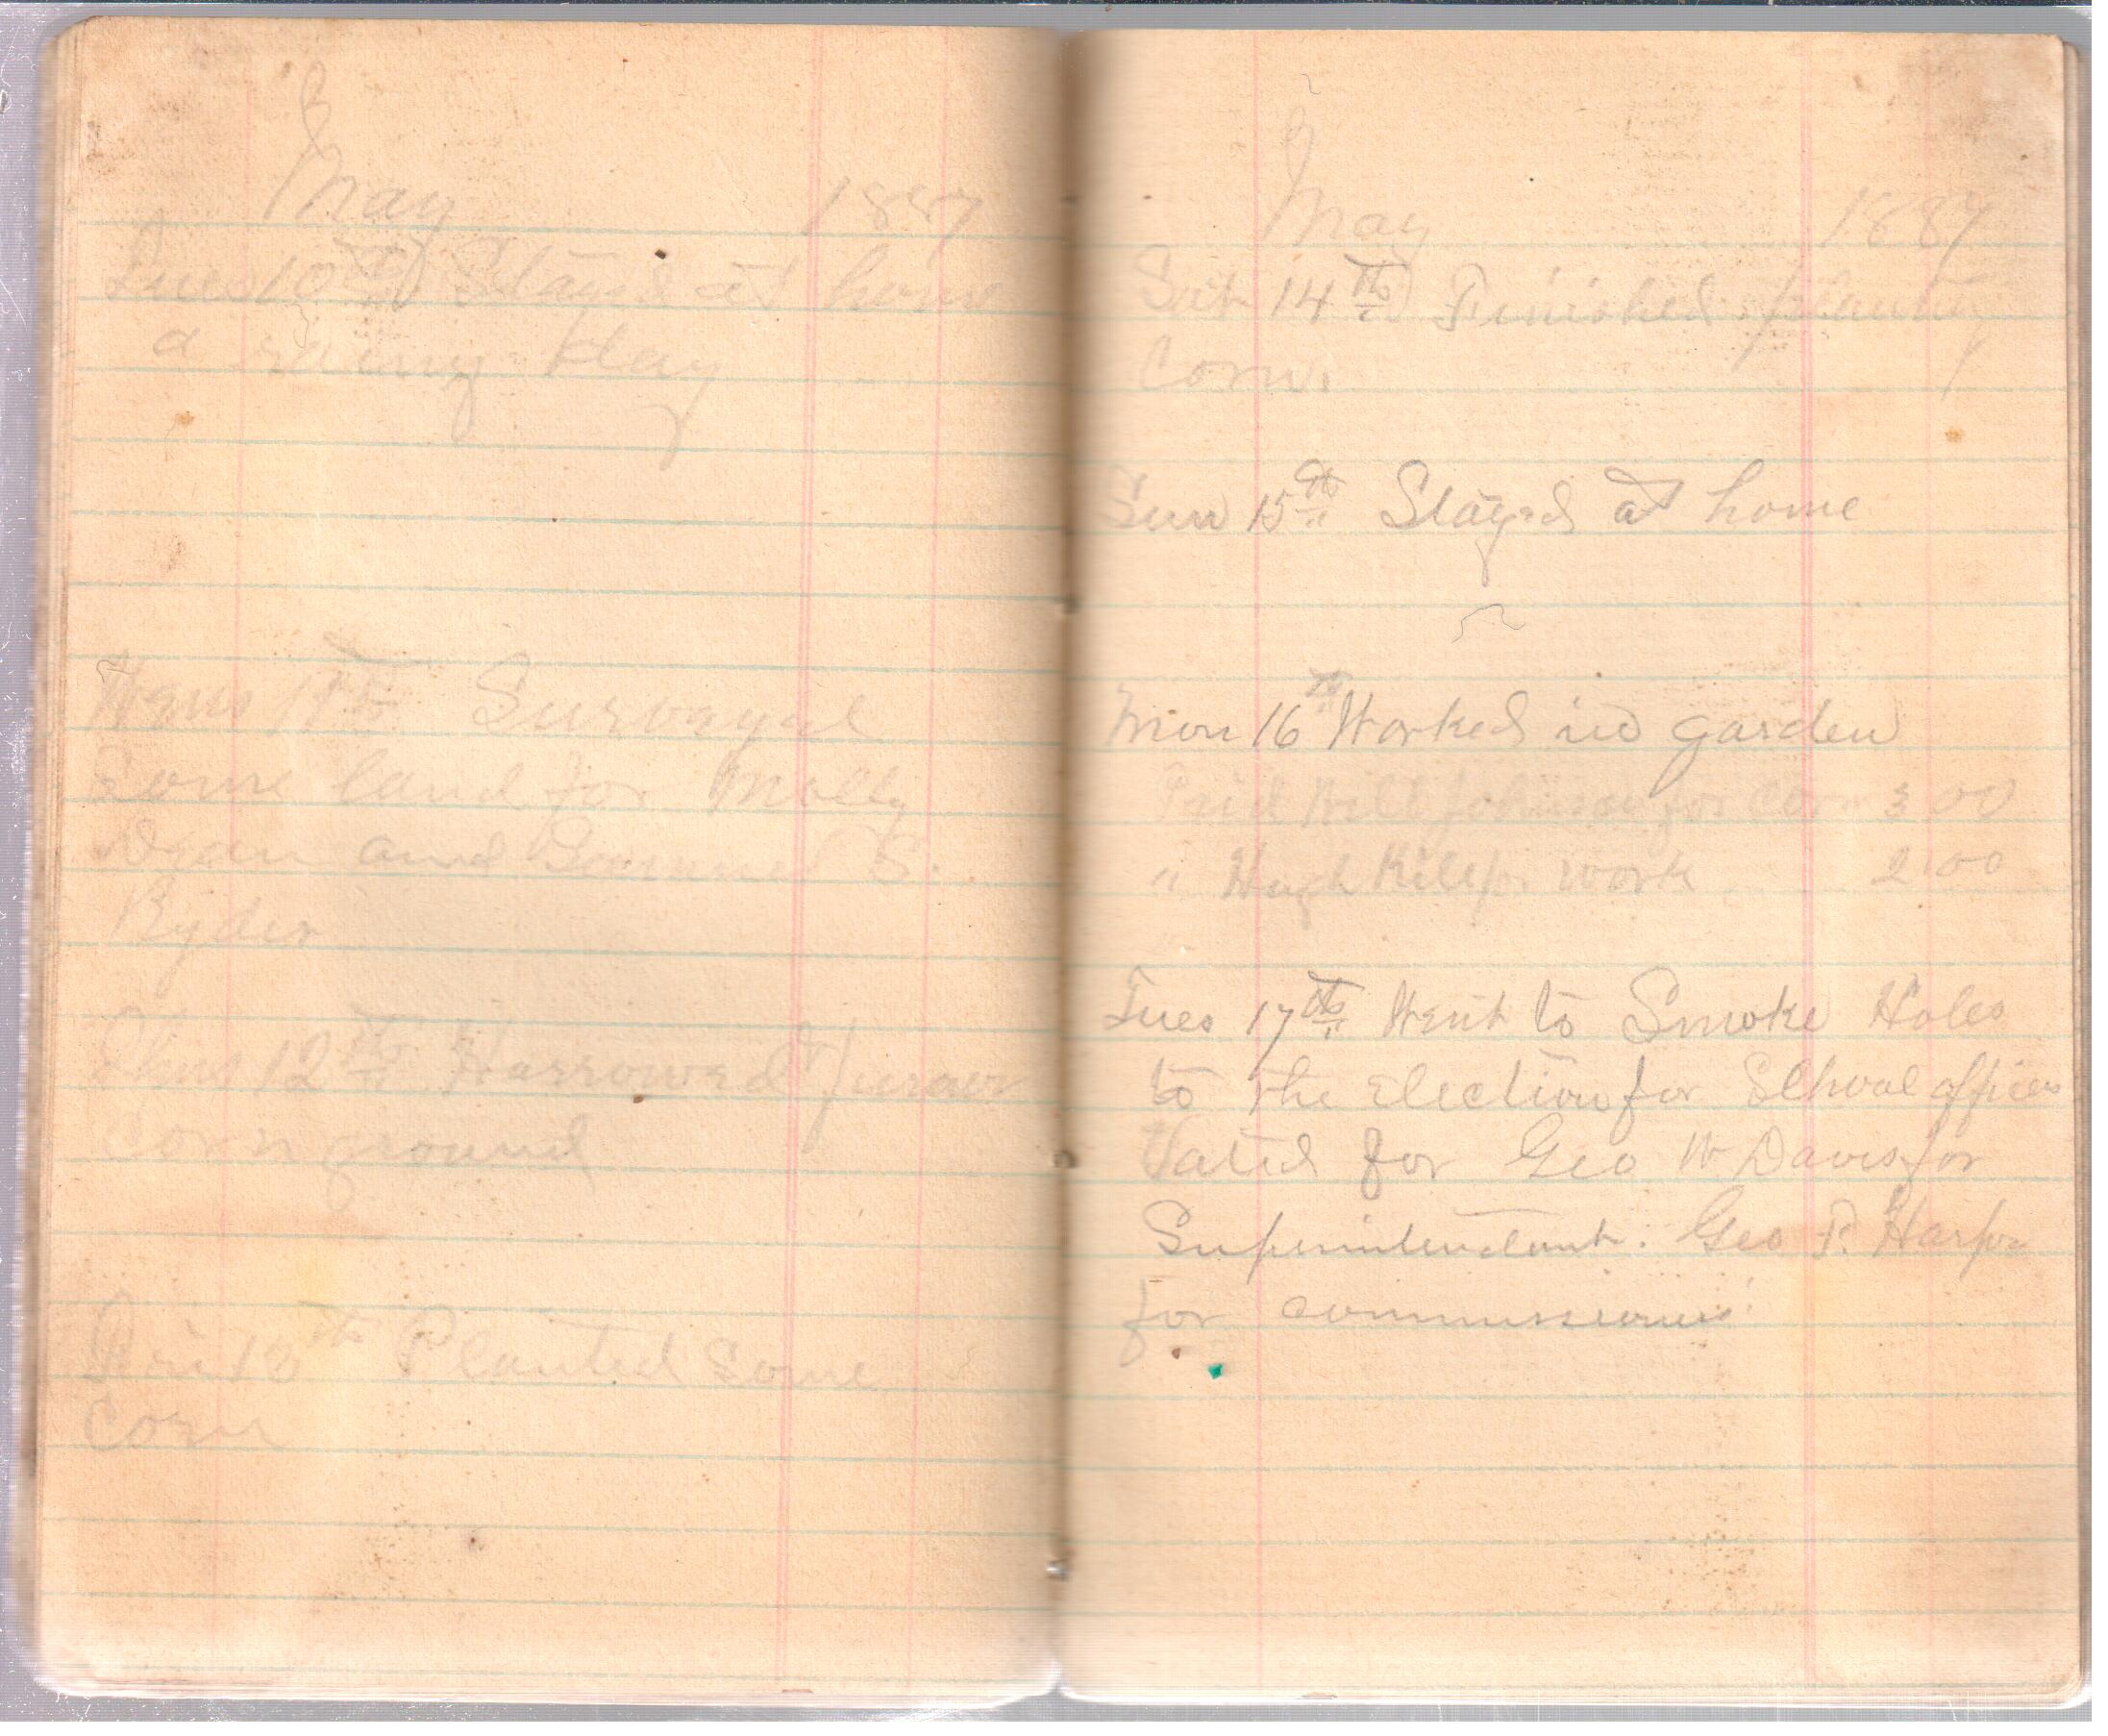 May 1887
Tues 10th Stayed at home
a rainy day
Wens 11th Survayed
Some land for Molly
and S.
Ryder
Thus 12th Harrowed
corn ground
Fri 13th Planted some
corn
May 1887
Sat 14th Finished planting
Corn.
Sun 15th Stayed at home
Mon 16th Worked in garden
Paid Will Johnson for corn 3 00
" Hugh Kile for work 2 00
Tues 17th Went to Smoke Holes
to the Election for School officers
Voted for Geo W Davis for
Superintendant. Geo P. Harper
for commissioner